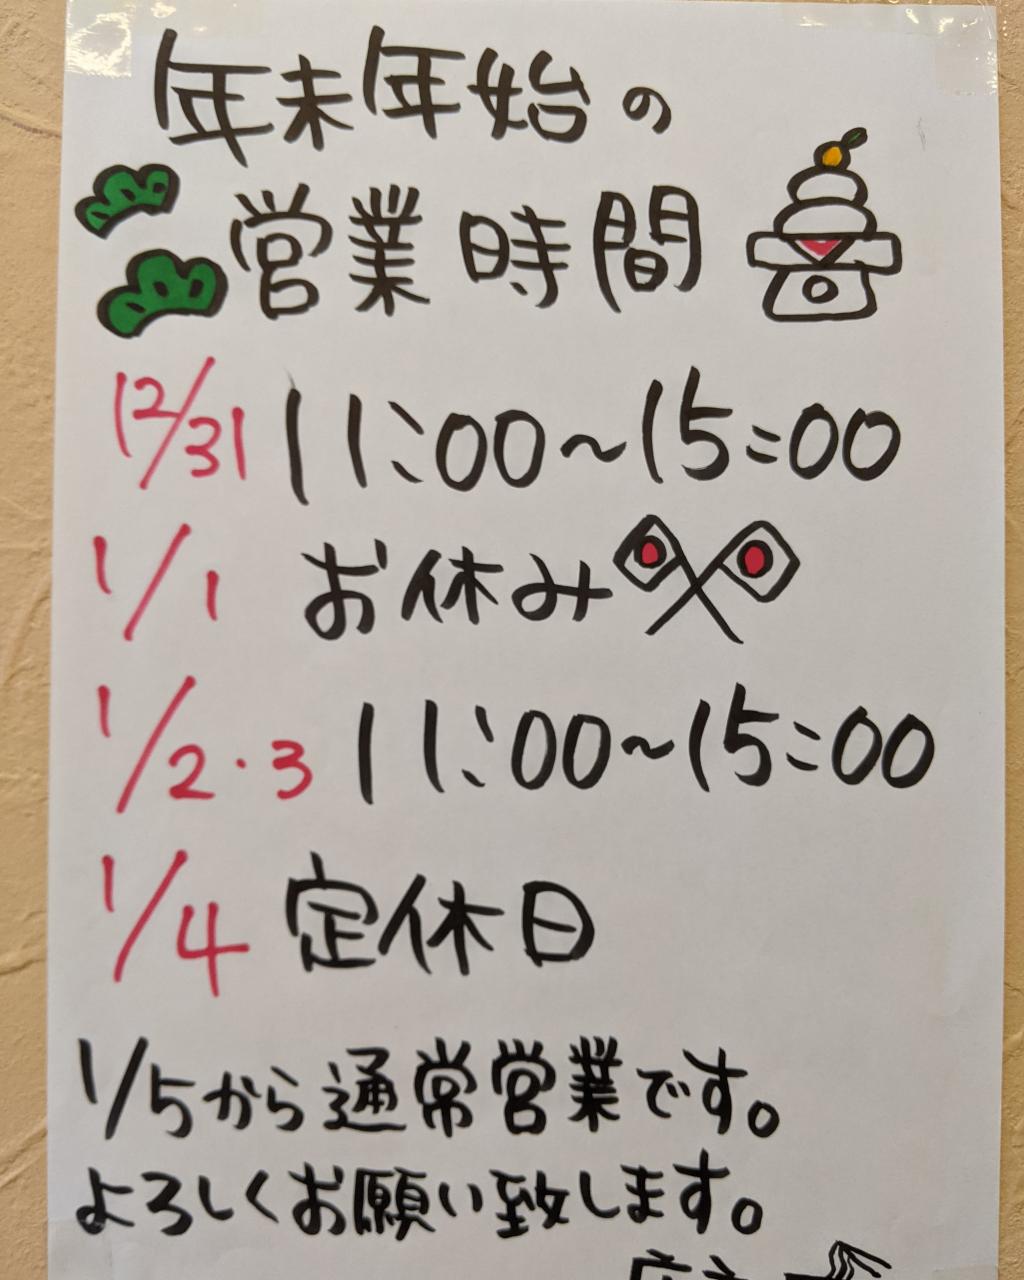 年末年始の
営業時間
12/31 11:00~15:00
1/1 お休み
1/2・3 11:00~15:00
1/4 定休日
1/5から通常営業です。
よろしくお願い致します。